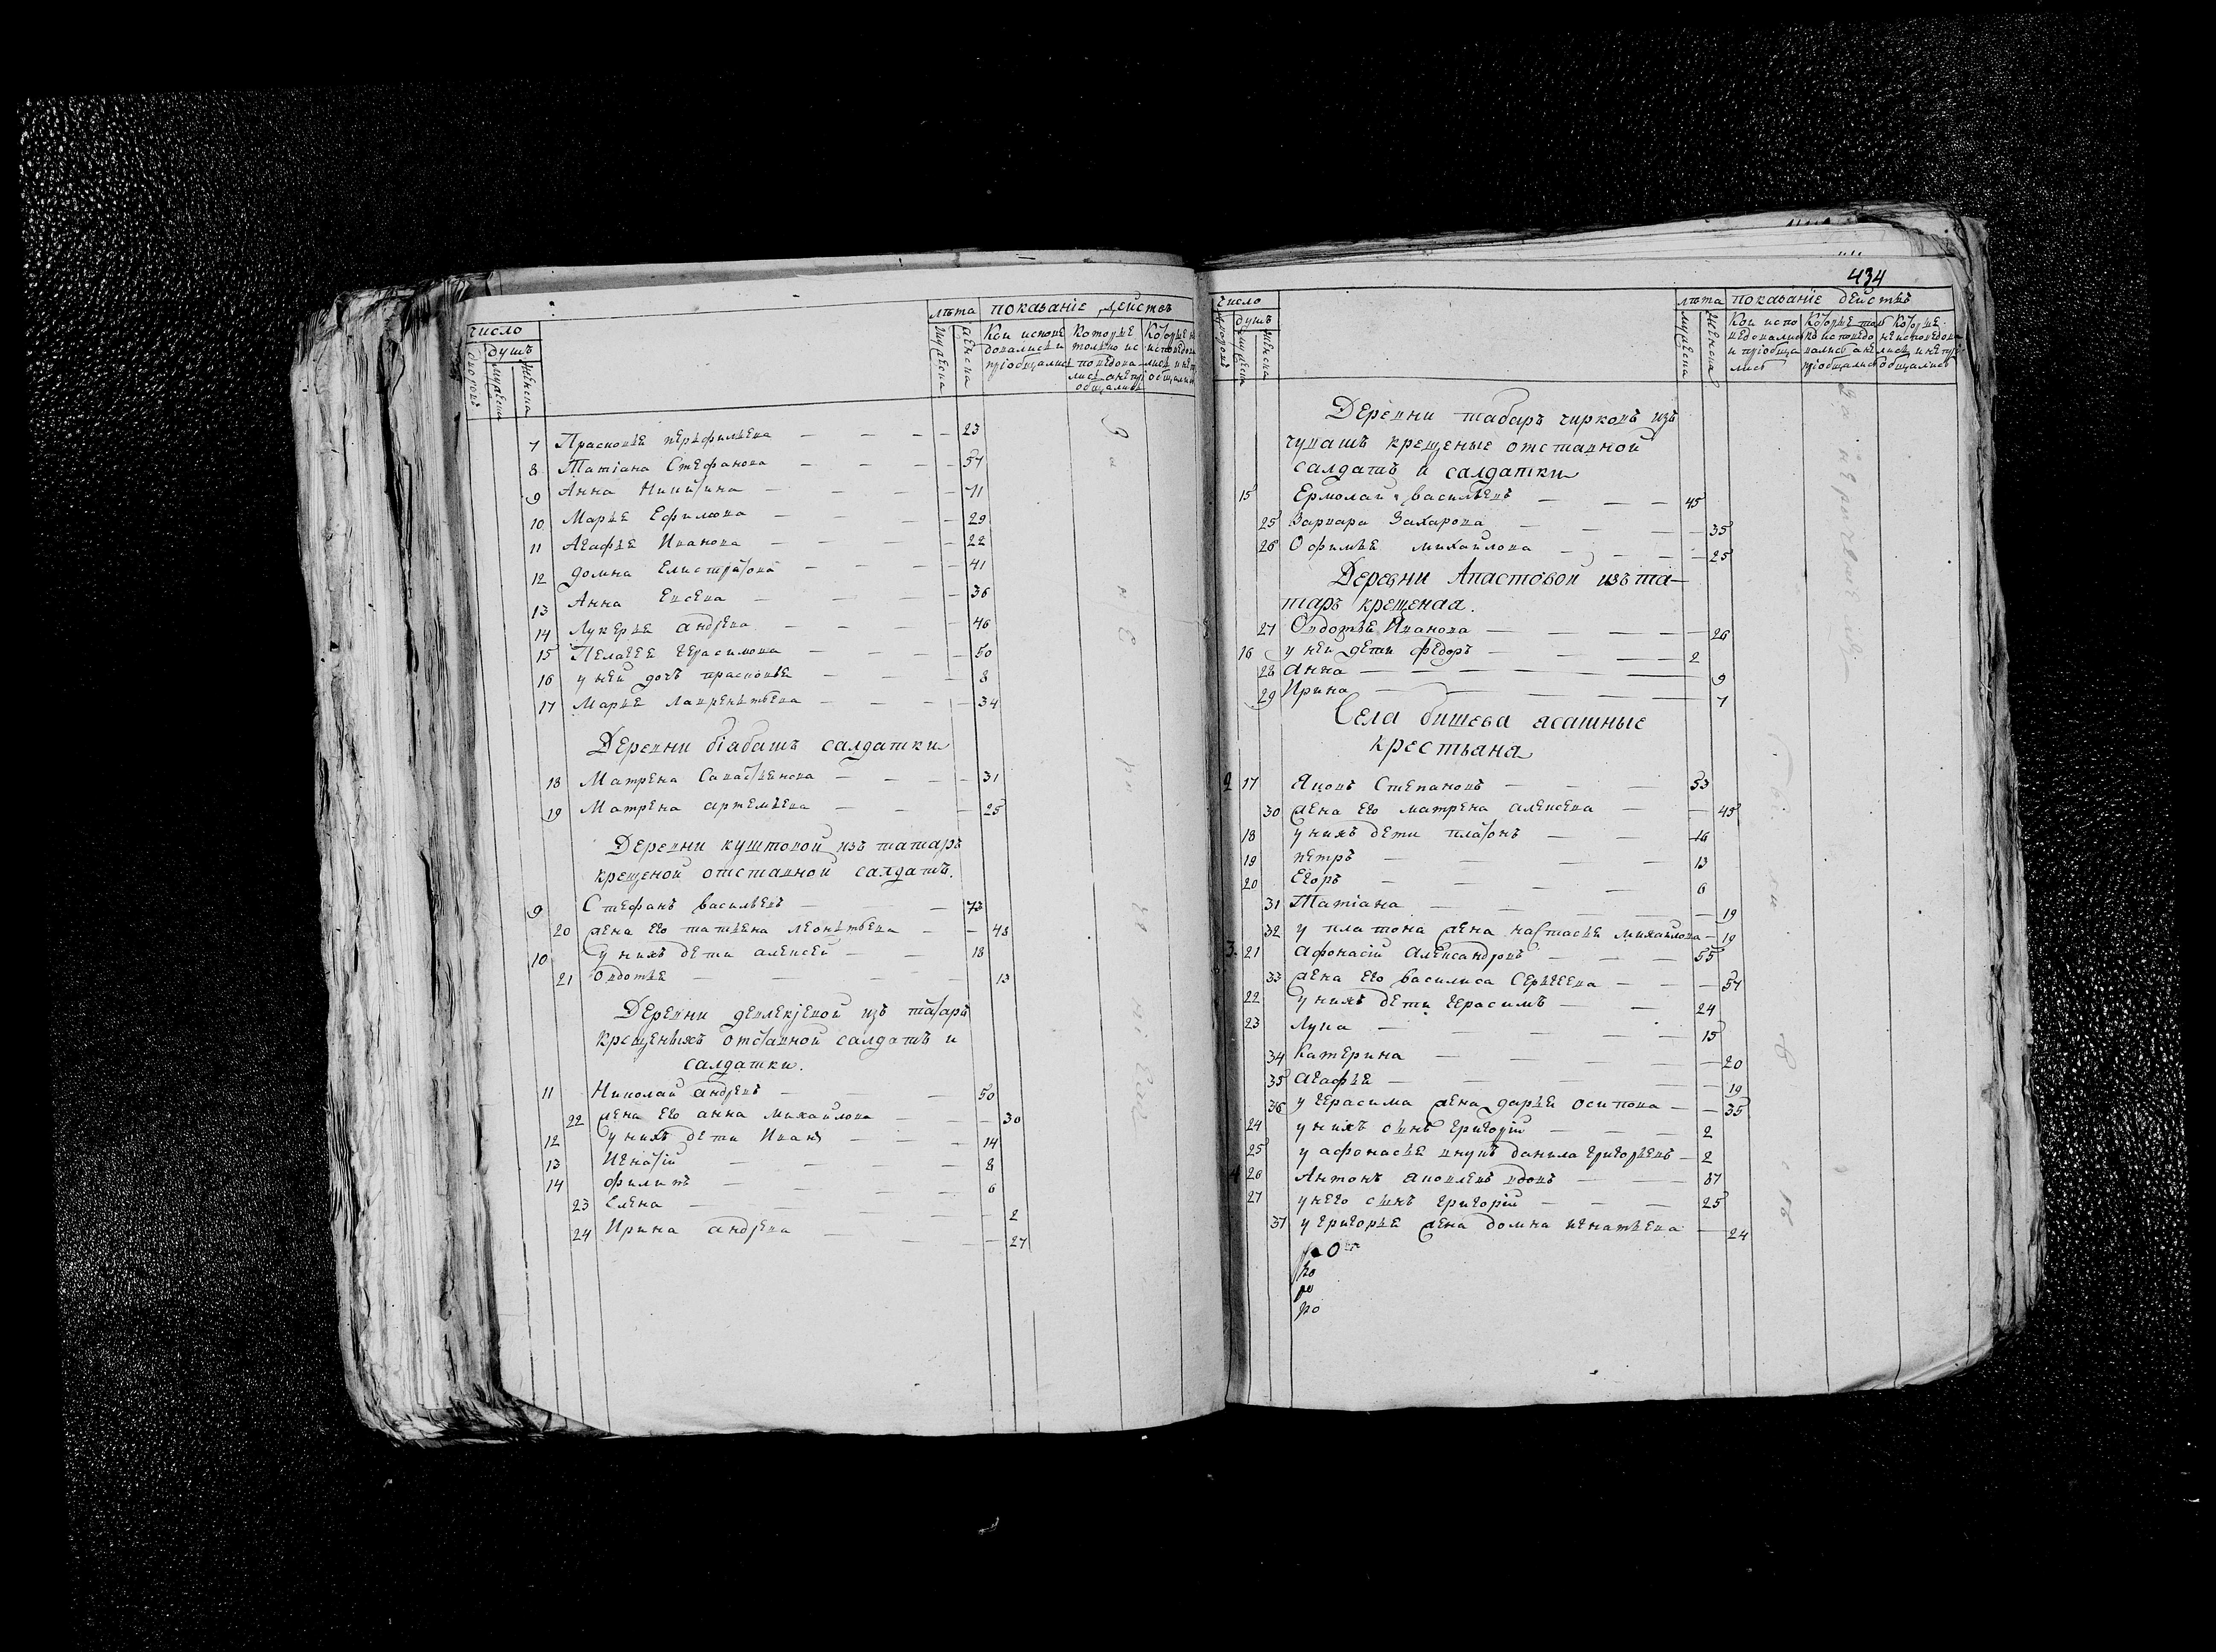 число
душъ
дворовъ
мужеска
женска
лѣта
мужеска
женска
показаніе действъ
Кои испове
довались и
пріобщались
Которые
только ис
поведова
лись а не прі
общались
7 Прасковье перфильева — — — 23
8 Татіана Стефанова — — — 57
9 Анна Никитина — — — 71
10 Марье Ефимова — — — 29
11 Агафье Иванова — — — 22
12 Домна Елистратова — — — 41
13 Анна Евсева — — — 36
14 Лукерье андрева — — — 46
15 Пелагее герасимова — — — 50
16 у ней дочь прасковье — — — 8
17 Марье лаврентьева — — — 34
Деревни біабашъ салдатки
18 Матрена Савастьенова — — — 31
19 Матрена артемьева — — — 25
Деревни куштовой изъ татаръ
крещеной отставной салдатъ.
9 Стефанъ васильевъ — — 73
20 жена его татьена леонтьева — — 48
10 у нихъ дети алексей — — 18
21 Овдотье — — — 13
Деревни
изъ татаръ
крещеныхъ отставной салдатъ и
салдатки.
11 Николай андревъ — — 50
22 жена его анна михайлова — — 30
12 у нихъ дети Иванъ — — 14
13 Игнатій — — — 8
14 филипъ — — — 6
23 Елена — — — 2
24 Ирина андрева — — — 27
434
число
душъ
дворовъ
мужеска
женска
лѣта
мужеска
женска
показаніе действъ
Кои испо
ведовались
и пріобща
лись
Которые толь
ко исповедо
вались а не
пріобщались
Которые
не исповедова
лись и не прі
общались
Деревни табаръ чирковъ изъ
чувашъ крещеные отставной
салдатъ и салдатки
15 Ермолай васильевъ — — 45
25 Варвара Захарова — — 35
26 Офимье михайлова — — 25
Деревни Апастовой изъ та—
таръ крещенаа.
27 Овдотье Иванова — — — 26
16 у ней дети федоръ — — — 2
28 анна — — — 9
29 Ирина — — — 7
Села бишева ясашные
крестьяна
2 17 Яковъ Степановъ — — — 53
30 жена его матрена алексева — — 45
18 у нихъ дети платонъ — — 16
19 петръ — — — 13
20 Егоръ — — — 6
31 Татіана — — — 19
32 у платона жена настасье михайлова — 19
3 21 афонасій Александровъ — — — 55
33 жена его василиса Сергеева — — 57
22 у нихъ дети герасимъ — — 24
23 Лука — — — 15
34 Катерина — — — 20
35 агафье — — — 19
36 у герасима жена дарье осипова — — 35
24 у нихъ сынъ григорій — — — 2
25 у афонасье внукъ данила григорьевъ — 2
4 26 Антонъ яковлевъ вдовъ — — 87
27 у него сынъ григорій — — — 25
37 у григорье жена домна игнатьева — 24
ро
ро
ро